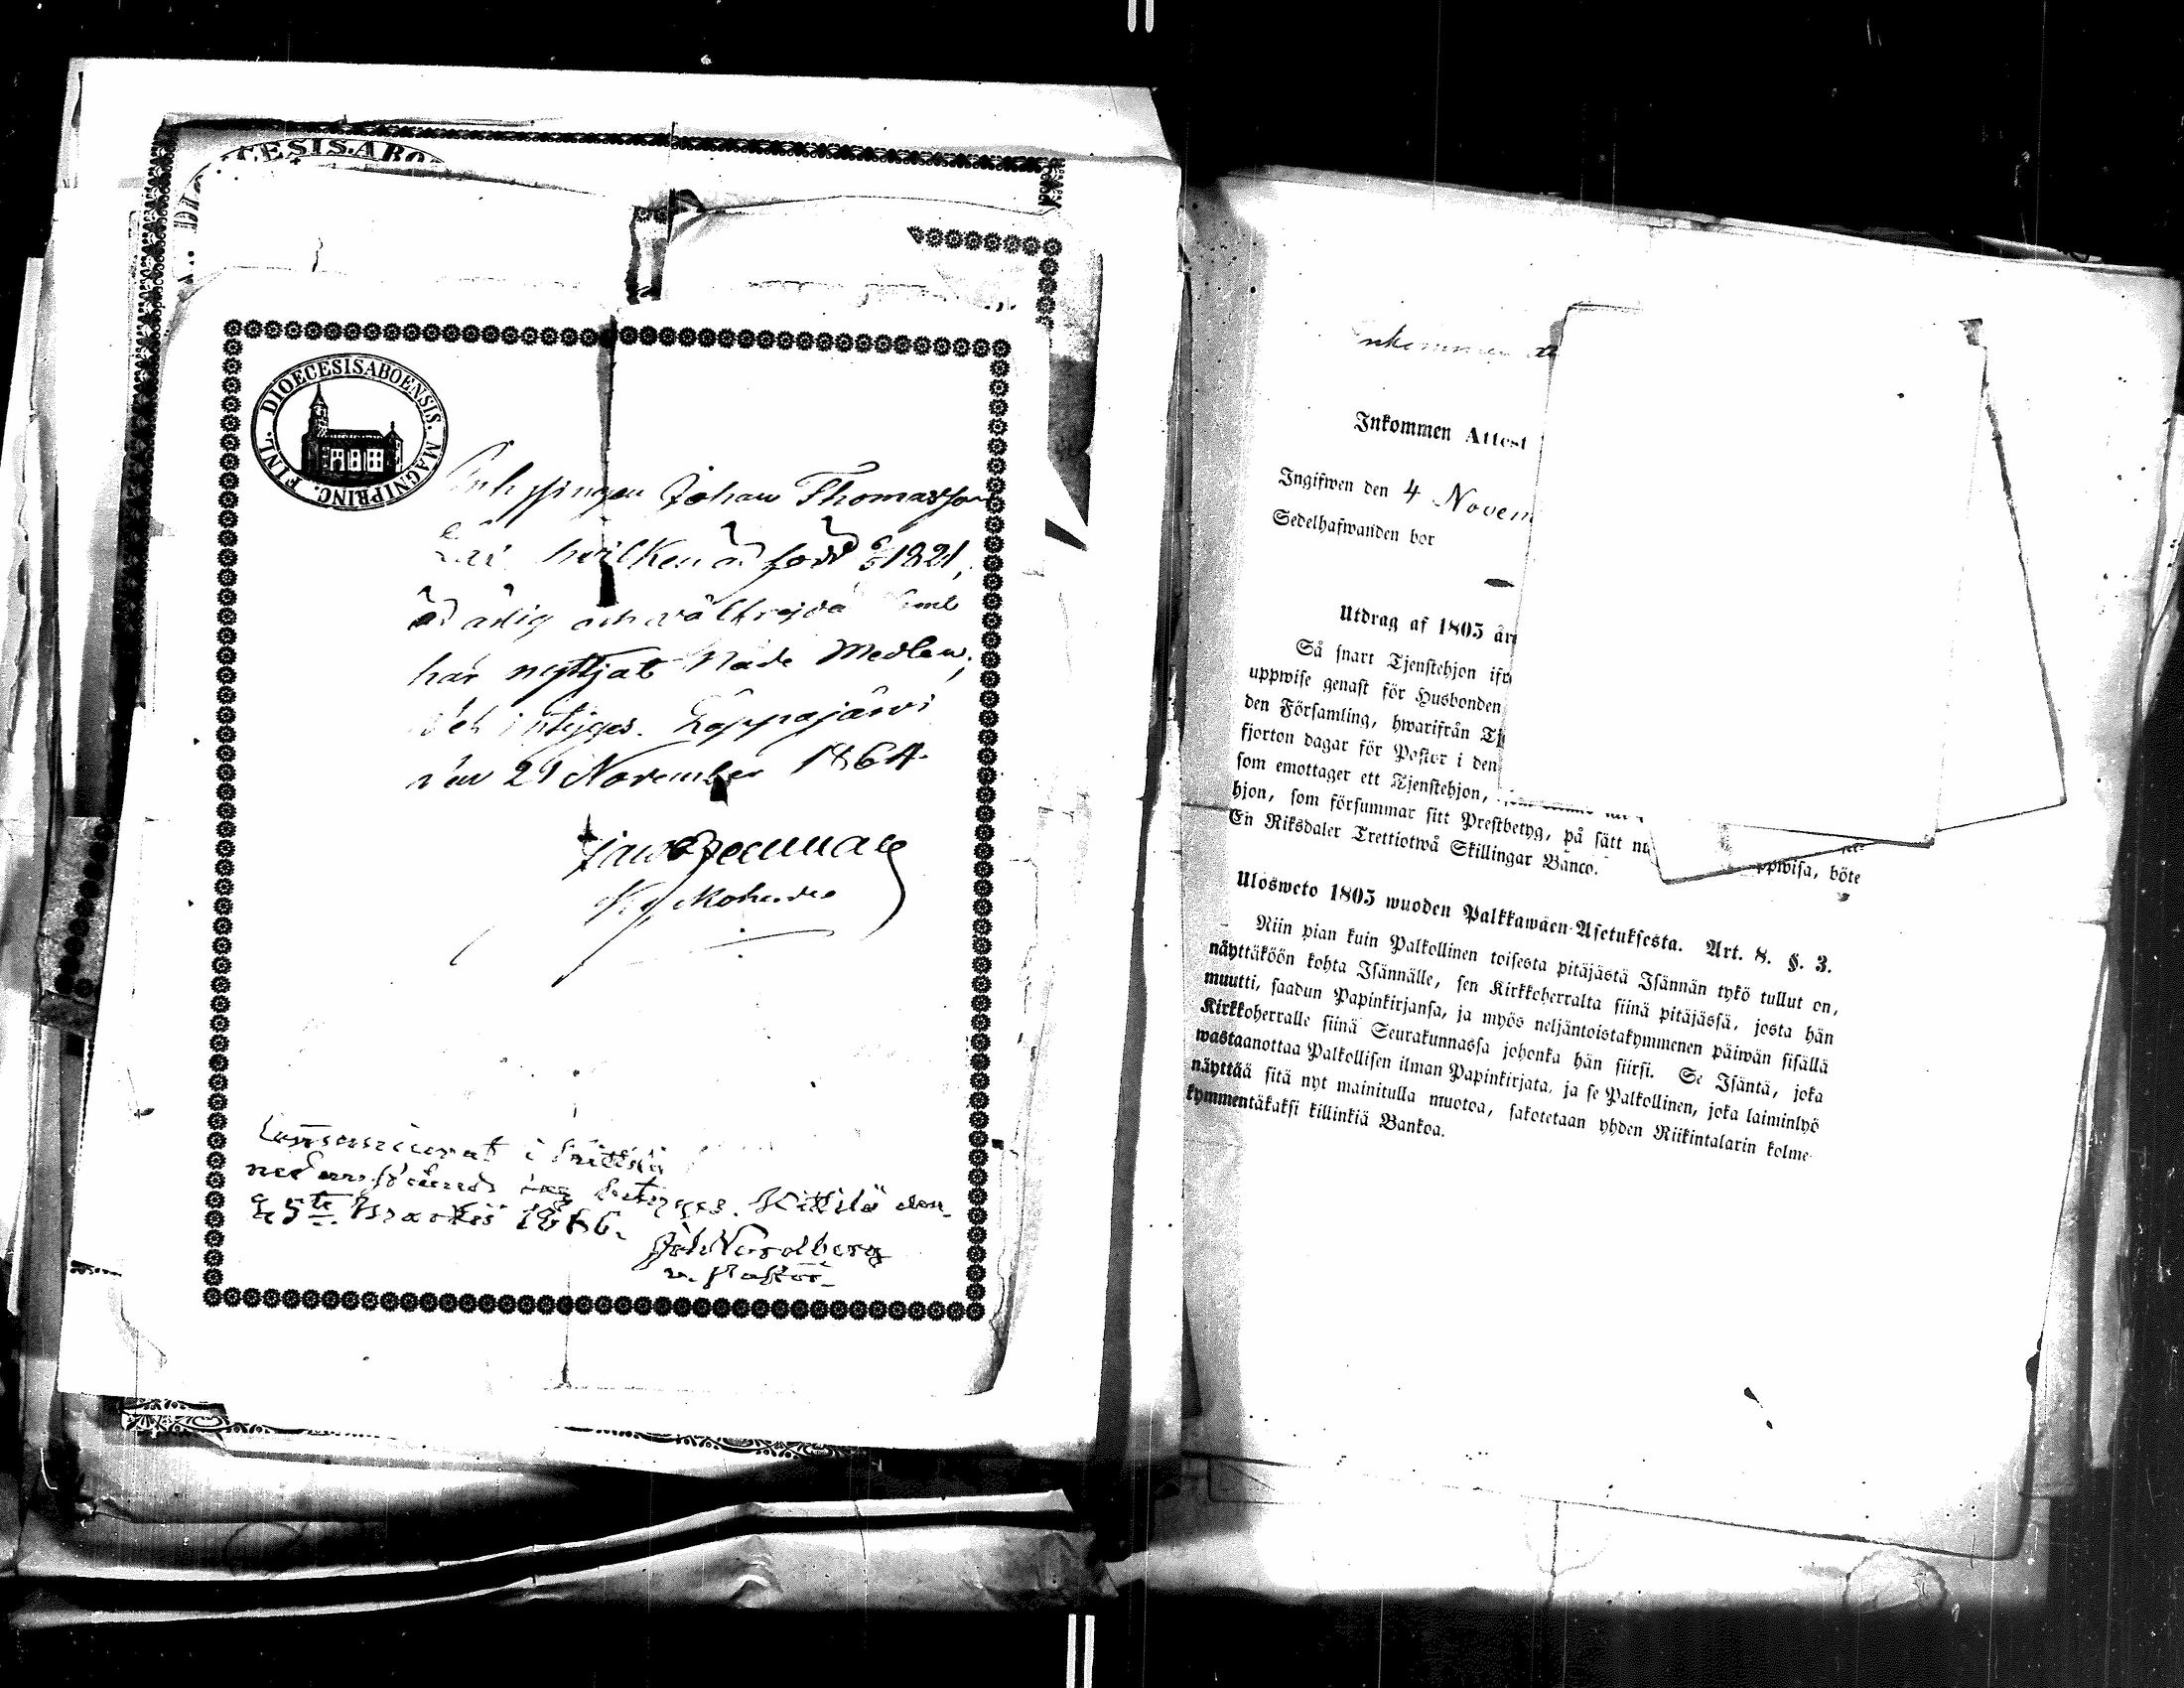 CESIS.ABO
DIOECESIS ABOENSIS. MAGNI PRINC. FINL.
Johan Thomasson
hvilken är född 6/5 1821,
är ärlig och välfrejdad samt
har nyttjat Nåde Medlen,
det intygas. Lappajärvi
den 21 November 1864.
Communicerat i Kittilä
betyges. Kittilä den
25te Martii 1866.
Joh Nordberg
v. Pastor
Inkommen Attest
Ingifwen den 4 Novem
Sedelhafwanden bor
Utdrag af 1805 år
Så snart Tjenstehjon ifr
uppwise genast för Husbonden
den Församling, hwarifrån Tj
fjorton dagar för Pastor i den
som emottager ett Tjenstehjon,
hjon, som försummar sitt Prestbetyg, på sätt nu
ppwisa, böte
En Riksdaler Trettiotwå Skillingar Banco.
Ulosweto 1805 wuoden Palkkawäen-Asetuksesta. Art. 8. §. 3.
Niin pian kuin Palkollinen toisesta pitäjästä Isännän tykö tullut on,
näyttäköön kohta Isännälle, sen Kirkkoherralta siinä pitäjässä, josta hän
muutti, saadun Papinkirjansa, ja myös neljäntoistakymmenen päiwän sisällä
Kirkkoherralle siinä Seurakunnassa johonka hän siirsi. Se Isäntä, joka
wastaanottaa Palkollisen ilman Papinkirjata, ja se Palkollinen, joka laiminlyö
näyttää sitä nyt mainitulla muotoa, sakotetaan yhden Riikintalarin kolme-
kymmentäkaksi killinkiä Bankoa.